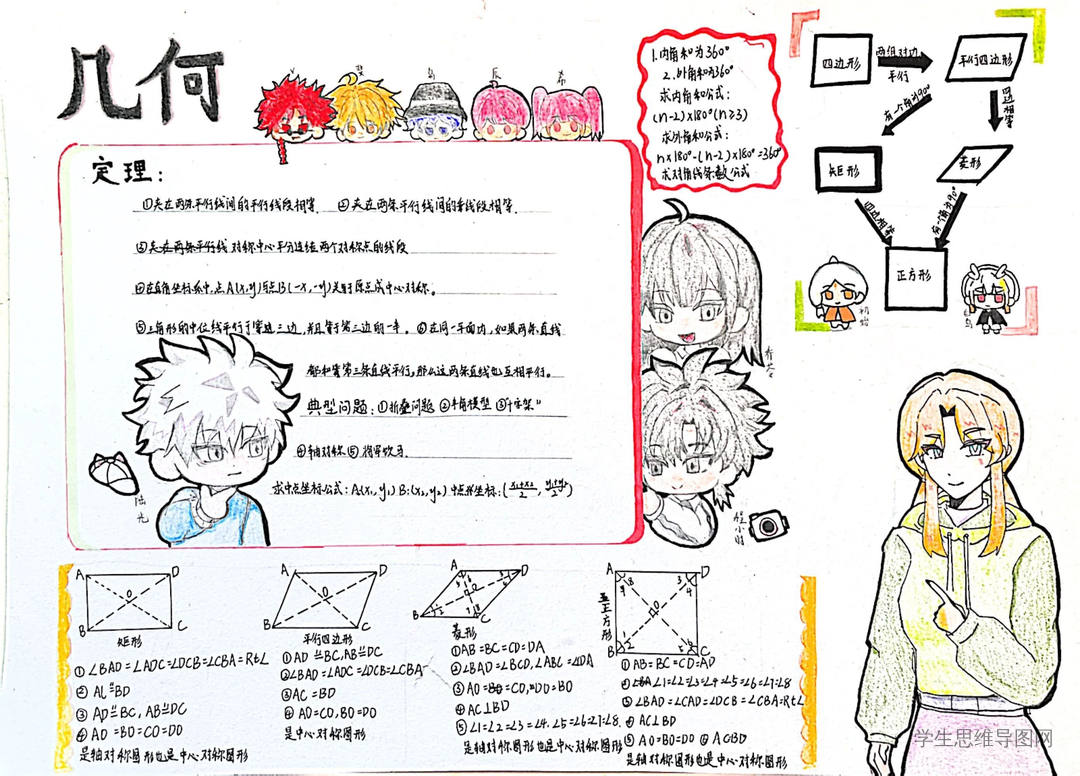 几何
定理:
①夹在两条平行线间的平行线段相等. ②夹在两条平行线间的垂线段相等.
③夹在两条平行线 对称中心平分连结两个对称点的线段
④在直角坐标系中,点A(x,y)与点B(-x,-y)关于原点成中心对称。
⑤三角形的中位线平行于第三边,并且等于第三边的一半。⑥在同一平面内,如果两条直线
都和第三条直线平行,那么这两条直线也互相平行。
典型问题:①折叠问题 ②半角模型 ③十字架"
④轴对称 ⑤将军饮马.
求中点坐标公式:A(x₁,y₁) B:(x₂,y₂) 中点坐标:(x₁+x₂/2, y₁+y₂/2)
陆光
乔苓
程小时
1.内角和为360°
2.外角和为360°
求内角和公式:
(n-2)×180°(n≥3)
求外角和公式:
n×180°-(n-2)×180°=360°
求对角线条数公式
四边形
两组对边
平行
平行四边形
有一个角为90°
四边相等
矩形
菱形
四边相等
有一个角为90°
正方形
A D
O
B C
矩形
①∠BAD=∠ADC=∠DCB=∠CBA=Rt∠
② AC=BD
③ AD=BC, AB=DC
④ AO=BO=CO=DO
是轴对称图形也是中心对称图形
A D
O
B C
平行四边形
① AD=BC, AB=DC
②∠BAD=∠ADC=∠DCB=∠CBA
③AC=BD
④ AO=CO, BO=DO
是中心对称图形
A D
O
B C
菱形
①AB=BC=CD=DA
②∠BAD=∠BCD, ∠ABC=∠DA
③ AO=CO, DO=BO
④ AC⊥BD
⑤∠1=∠2=∠3=∠4.∠5=∠6=∠7=∠8
是轴对称图形也是中心对称图形
A D
O
B C
正方形
① AB=BC=CD=AD
②∠1=∠2=∠3=∠4=∠5=∠6=∠7=∠8
③∠BAD=∠CAD=∠DCB=∠CBA=Rt∠
④ AC⊥BD
⑤ AO=BO=DO
是轴对称图形也是中心对称图形
学生思维导图网